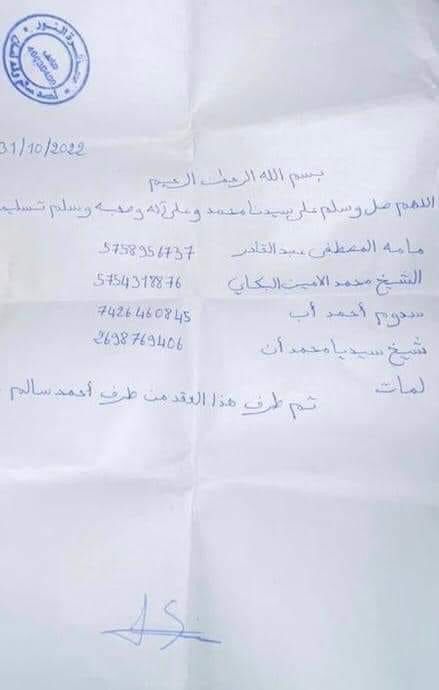 31/10/2022
بسم الله الرحمن الرحيم
اللهم صل وسلم على سيدنا محمد وعلى آله وصحبه وسلم تسليما
مامه المصطفى عبد القادر 5758956737
الشيخ محمد الامين البكاي 5754318876
سدوم أحمد أب 7426460845
شيخ سيديا محمد أن 2698769406
لمات
تم طرف هذا العقد من طرف أحمد سالم